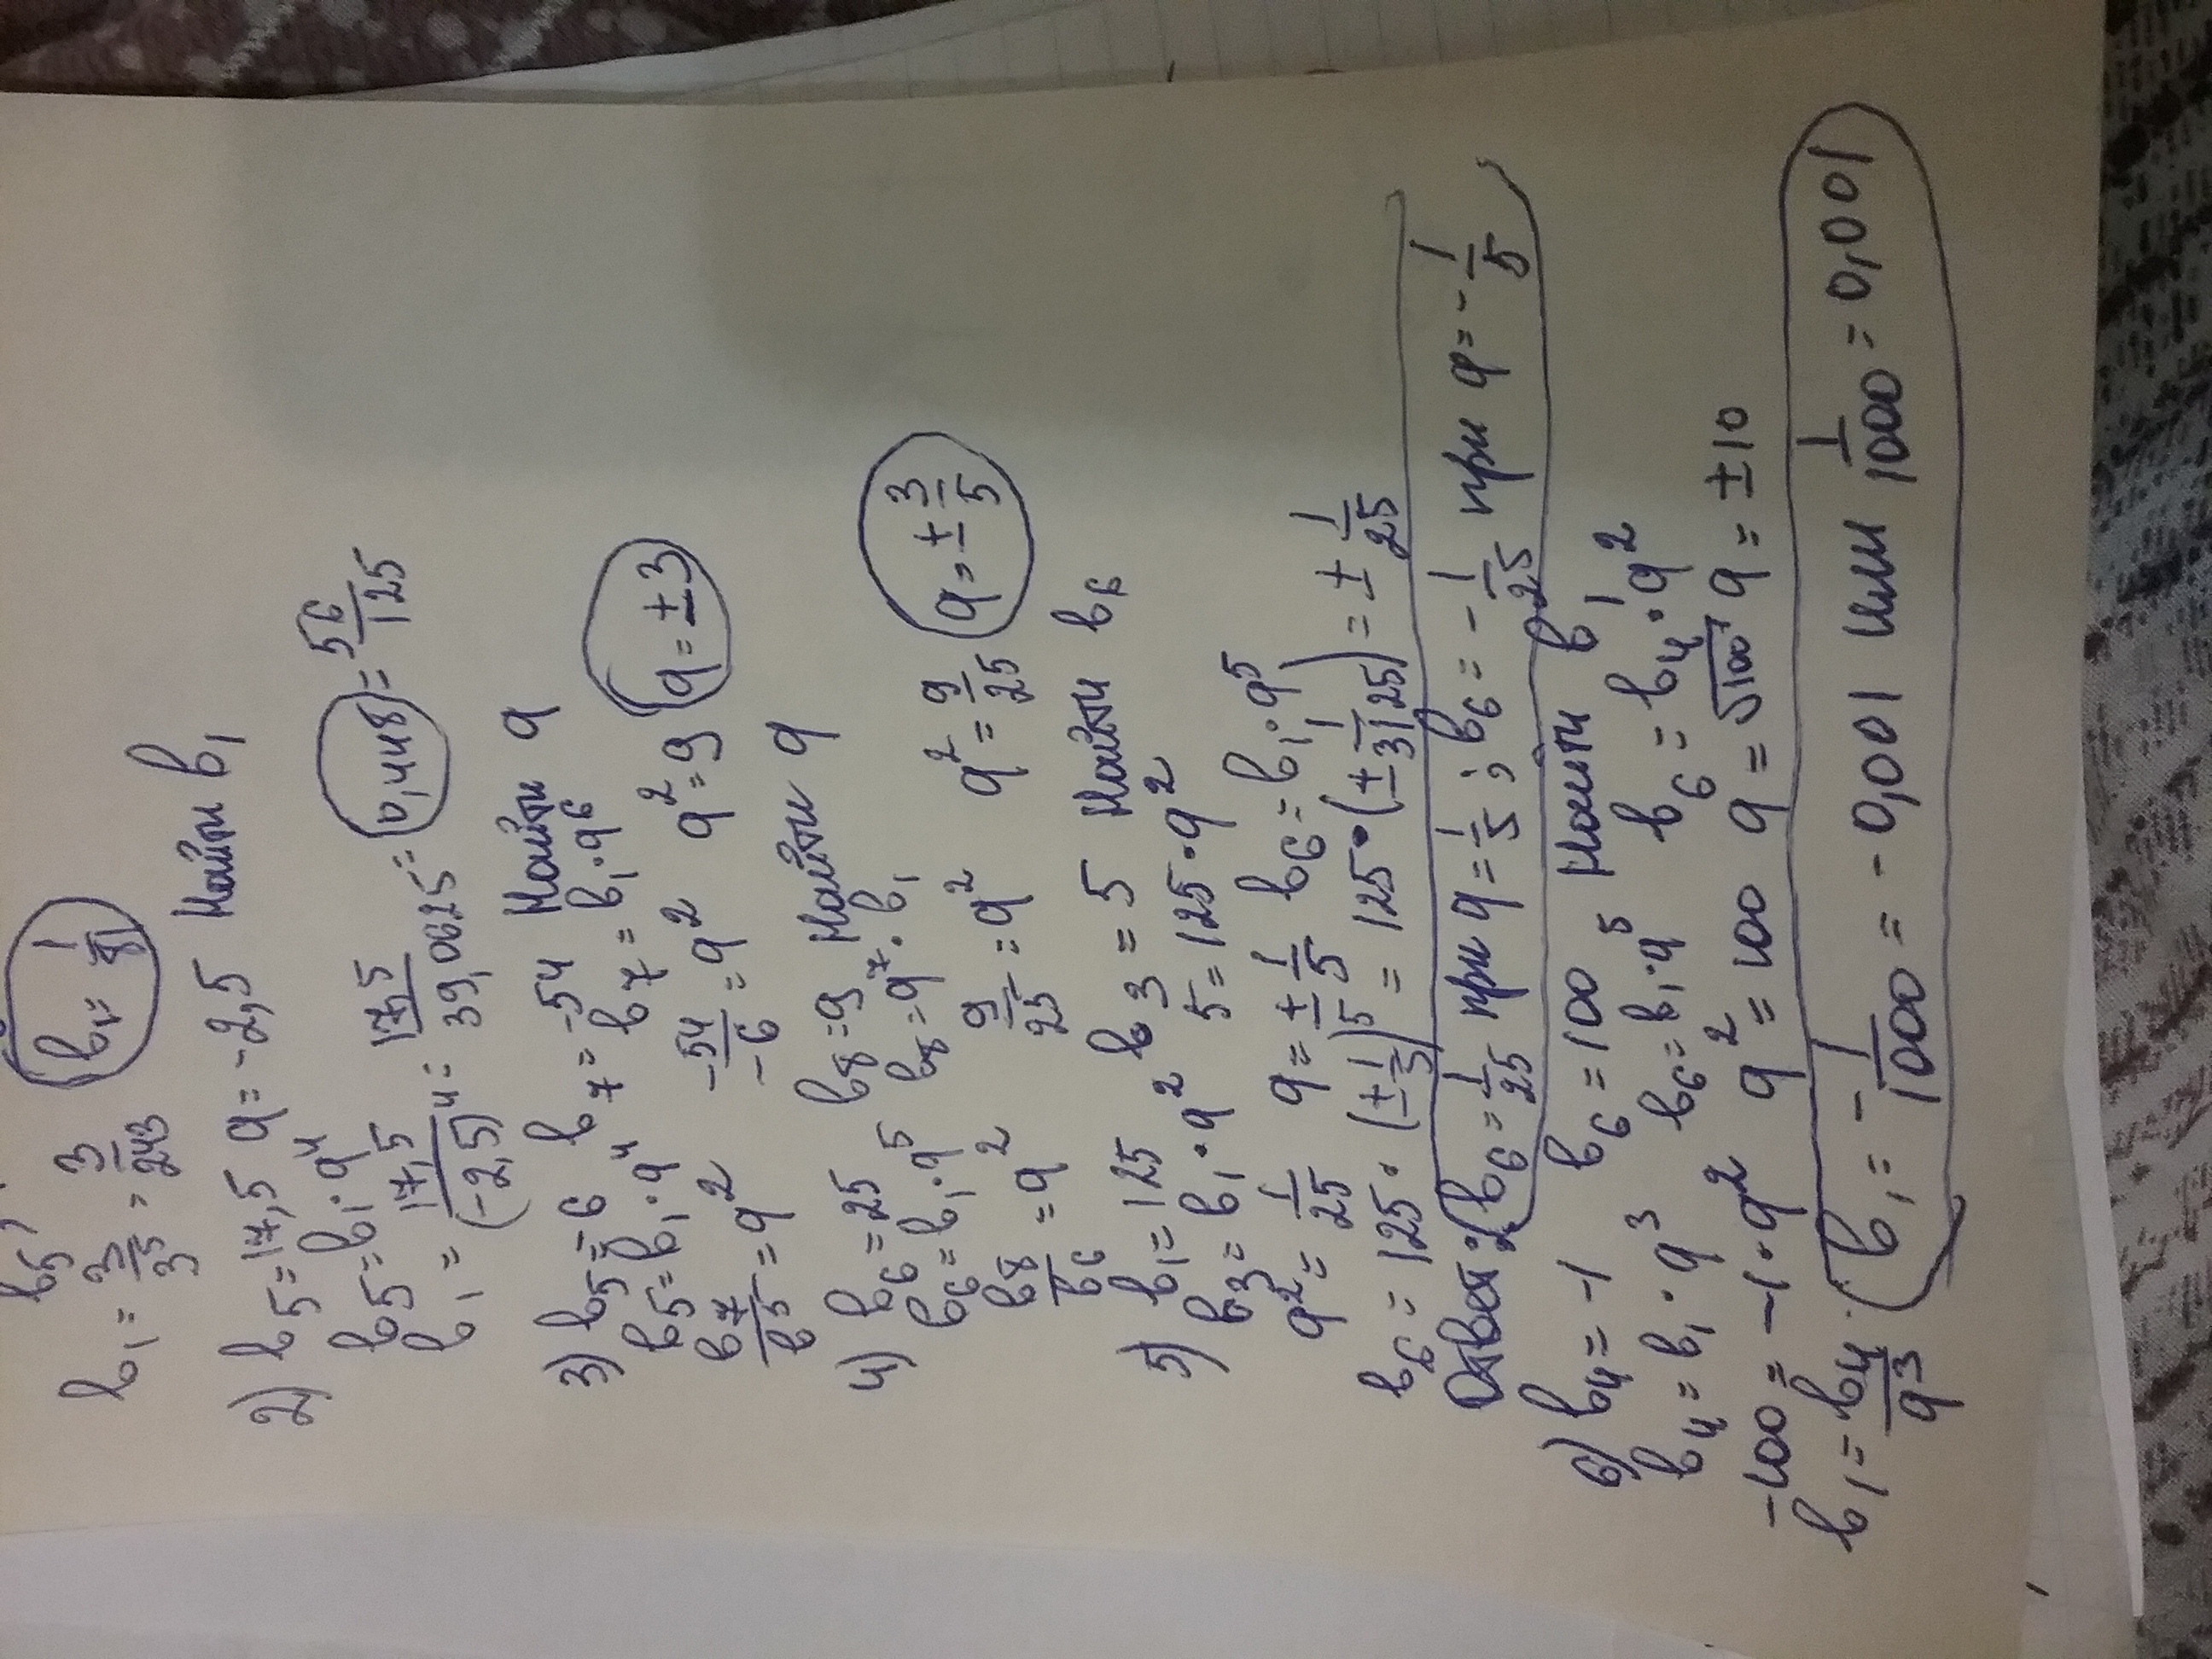 b5
b1 = 3/3^5 = 3/243 b1 = 1/81
2) b5 = 17,5 q = -2,5 Найти b1
b5 = b1·q^4
b1 = 17,5/(-2,5)^4 = 17,5/39,0625 = 0,448 = 56/125
3) b5 = -6 b7 = -54 Найти q
b5 = b1·q^4 b7 = b1·q^6
b7/b5 = q^2 -54/-6 = q^2 q^2 = 9 q = ±3
4) b6 = 25 b8 = 9 Найти q
b6 = b1·q^5 b8 = q^7·b1
b8/b6 = q^2 9/25 = q^2 q^2 = 9/25 q = ±3/5
5) b1 = 125 b3 = 5 Найти b6
b3 = b1·q^2 5 = 125·q^2
q^2 = 1/25 q = ±1/5 b6 = b1·q^5
b6 = 125·(±1/5)^5 = 125·(±1/3125) = ±1/25
Ответ: b6 = 1/25 при q = 1/5; b6 = -1/25 при q = -1/5
6) b4 = -1 b6 = 100 Найти b1
b4 = b1·q^3 b6 = b1·q^5 b6 = b4·q^2
-100 = -1·q^2 q^2 = 100 q = √100 q = ±10
b1 = b4/q^3 b1 = -1/1000 = -0,001 или 1/1000 = 0,001